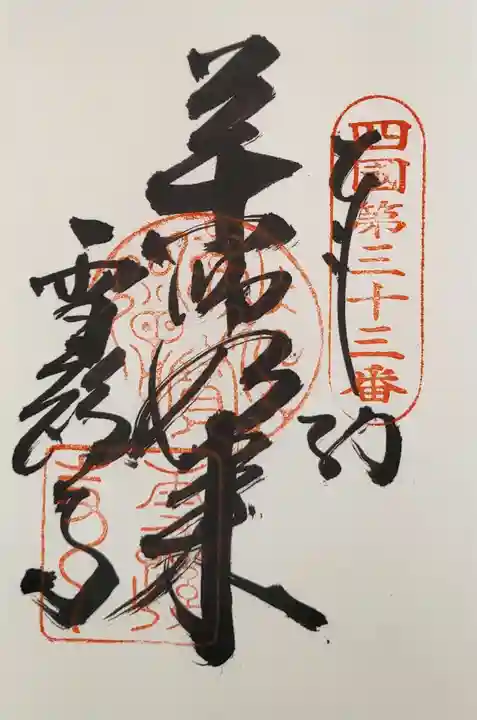 四國第三十三番
奉納
薬師如来
雪蹊寺